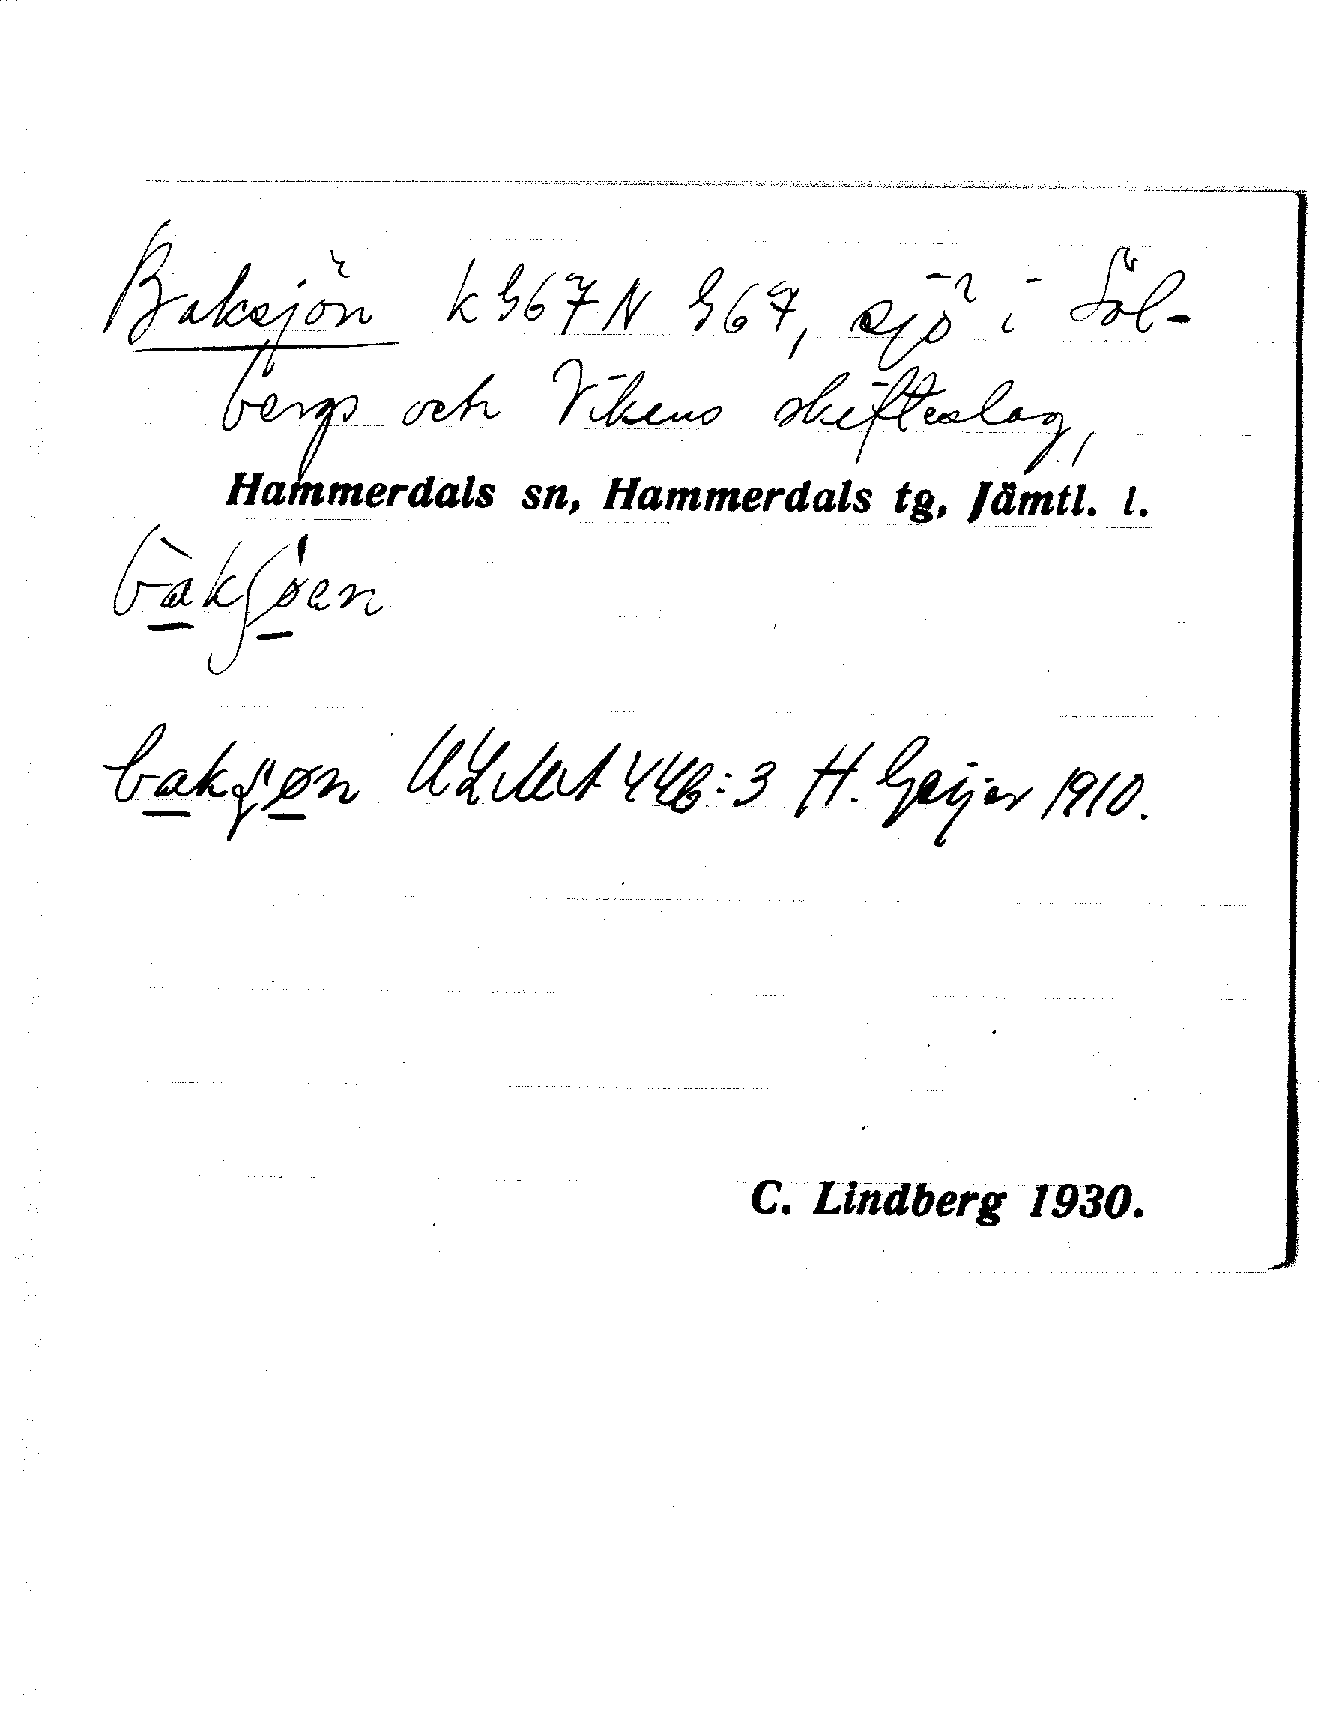 Baksjön k 967 N 967, sjö i Söl-
bergs och Vikens skifteslag,
Hammerdals sn, Hammerdals tg, Jämtl. l.
bakʃøen
bakʃøn ULMA 446:3 H. Geijer 1910.
C. Lindberg 1930.